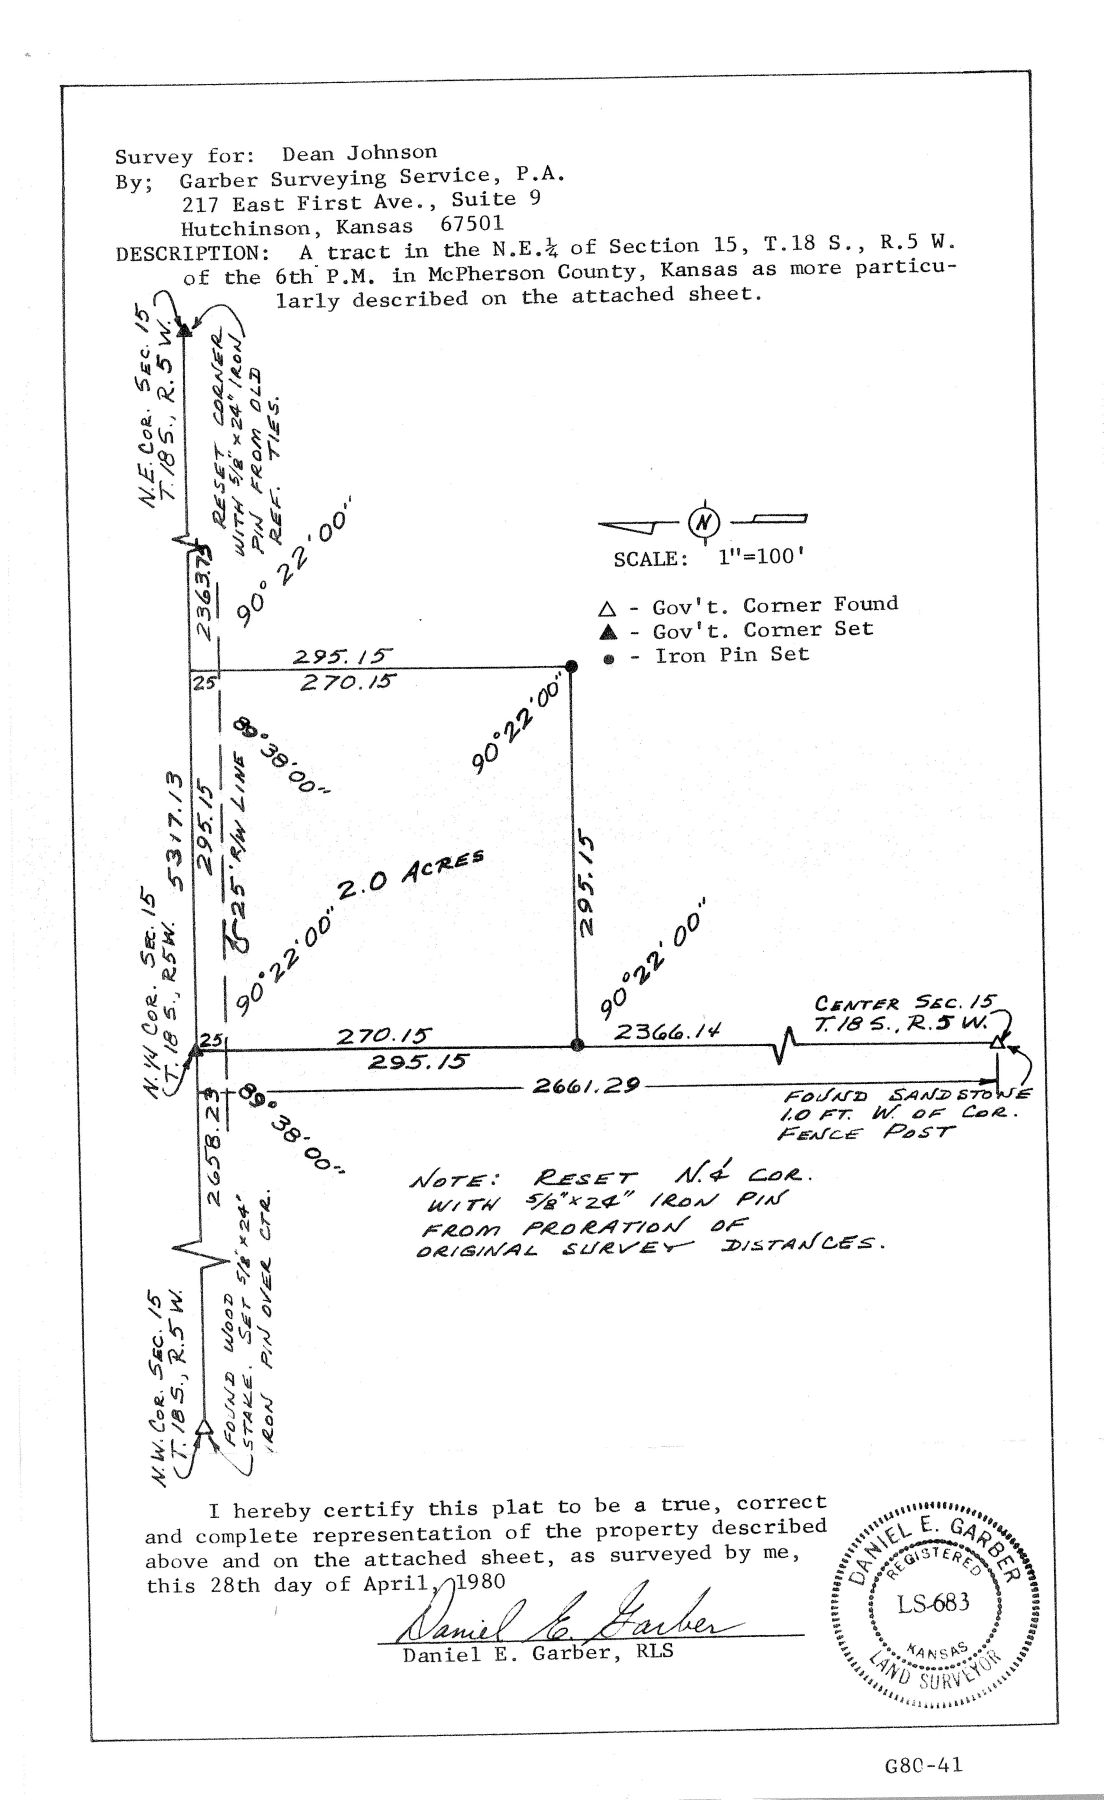 Survey for: Dean Johnson
By; Garber Surveying Service, P.A.
217 East First Ave., Suite 9
Hutchinson, Kansas 67501
DESCRIPTION: A tract in the N.E.¼ of Section 15, T.18 S., R.5 W.
of the 6th P.M. in McPherson County, Kansas as more particu-
larly described on the attached sheet.
N.E. COR. SEC. 15
T. 18 S., R. 5 W.
RESET CORNER
WITH 5/8" x 24" IRON
PIN FROM OLD
REF. TIES.
2363.75
90° 22' 00"
N
SCALE: 1"=100'
△ - Gov't. Corner Found
▲ - Gov't. Corner Set
● - Iron Pin Set
295.15
25
270.15
89° 38' 00"
90° 22' 00"
5317.13
295.15
25' R/W LINE
2.0 ACRES
295.15
90° 22' 00"
90° 22' 00"
N. 1/4 COR. SEC. 15
T. 18 S., R5W.
25
270.15
295.15
2366.14
CENTER SEC. 15
T. 18 S., R. 5 W.
2661.29
FOUND SANDSTONE
1.0 FT. W. OF COR.
FENCE POST
2658.23
89° 38' 00"
NOTE: RESET N.¼ COR.
WITH 5/8" x 24" IRON PIN
FROM PRORATION OF
ORIGINAL SURVEY DISTANCES.
N.W. COR. SEC. 15
T. 18 S., R. 5 W.
FOUND WOOD
STAKE. SET 5/8" x 24"
IRON PIN OVER CTR.
I hereby certify this plat to be a true, correct
and complete representation of the property described
above and on the attached sheet, as surveyed by me,
this 28th day of April, 1980
Daniel E. Garber
Daniel E. Garber, RLS
DANIEL E. GARBER
REGISTERED
LS-683
KANSAS
LAND SURVEYOR
G80-41